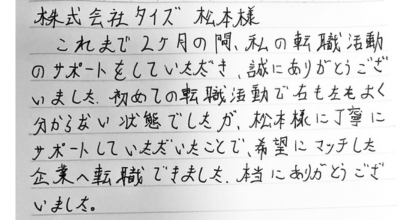 株式会社タイズ 松本様
これまで2ヶ月の間、私の転職活動
のサポートをしていただき、誠にありがとうござ
いました。初めての転職活動で右も左もよく
分からない状態でしたが、松本様に丁寧に
サポートしていただいたことで、希望にマッチした
企業へ転職できました。本当にありがとうござ
いました。